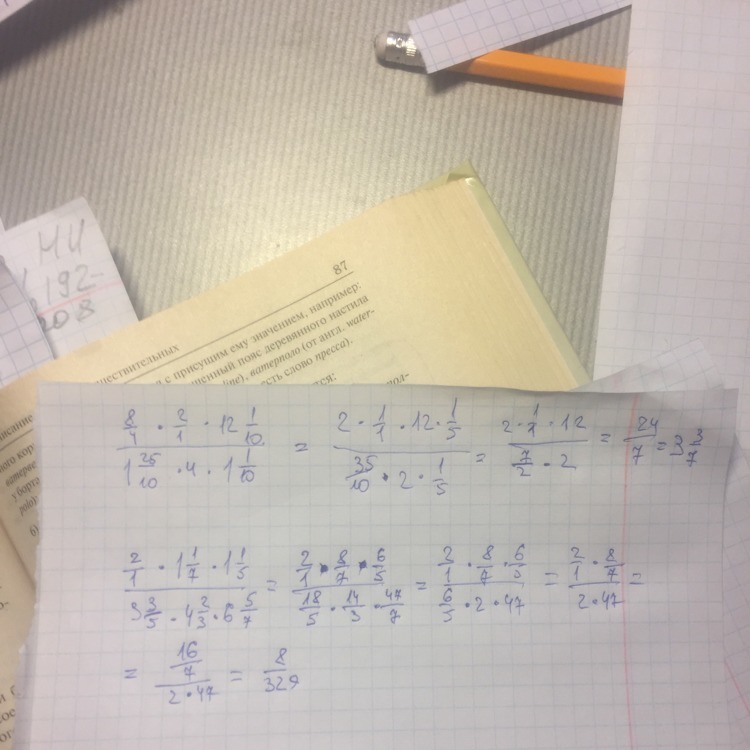 МИ
192-
208
87
ществительных
с присущим ему значением, например:
енный пояс деревянного настила
line), ватерполо (от англ. water-
есть слово пресса).
тся:
пол-
8/4 · 2/1 · 12 1/10 / 1 25/10 · 4 · 1 1/10 = 2 · 1/1 · 12 · 1/5 / 35/10 · 2 · 1/5 = 2 · 1/1 · 12 / 7/2 · 2 = 24/7 = 3 3/7
2/1 · 1 1/7 · 1 1/5 / 3 3/5 · 4 2/3 · 6 5/7 = 2/1 · 8/7 · 6/5 / 18/5 · 14/3 · 47/7 = 2/1 · 8/7 · 6/5 / 6/5 · 2 · 47 = 2/1 · 8/7 / 2 · 47 =
= 16/7 / 2 · 47 = 8/329